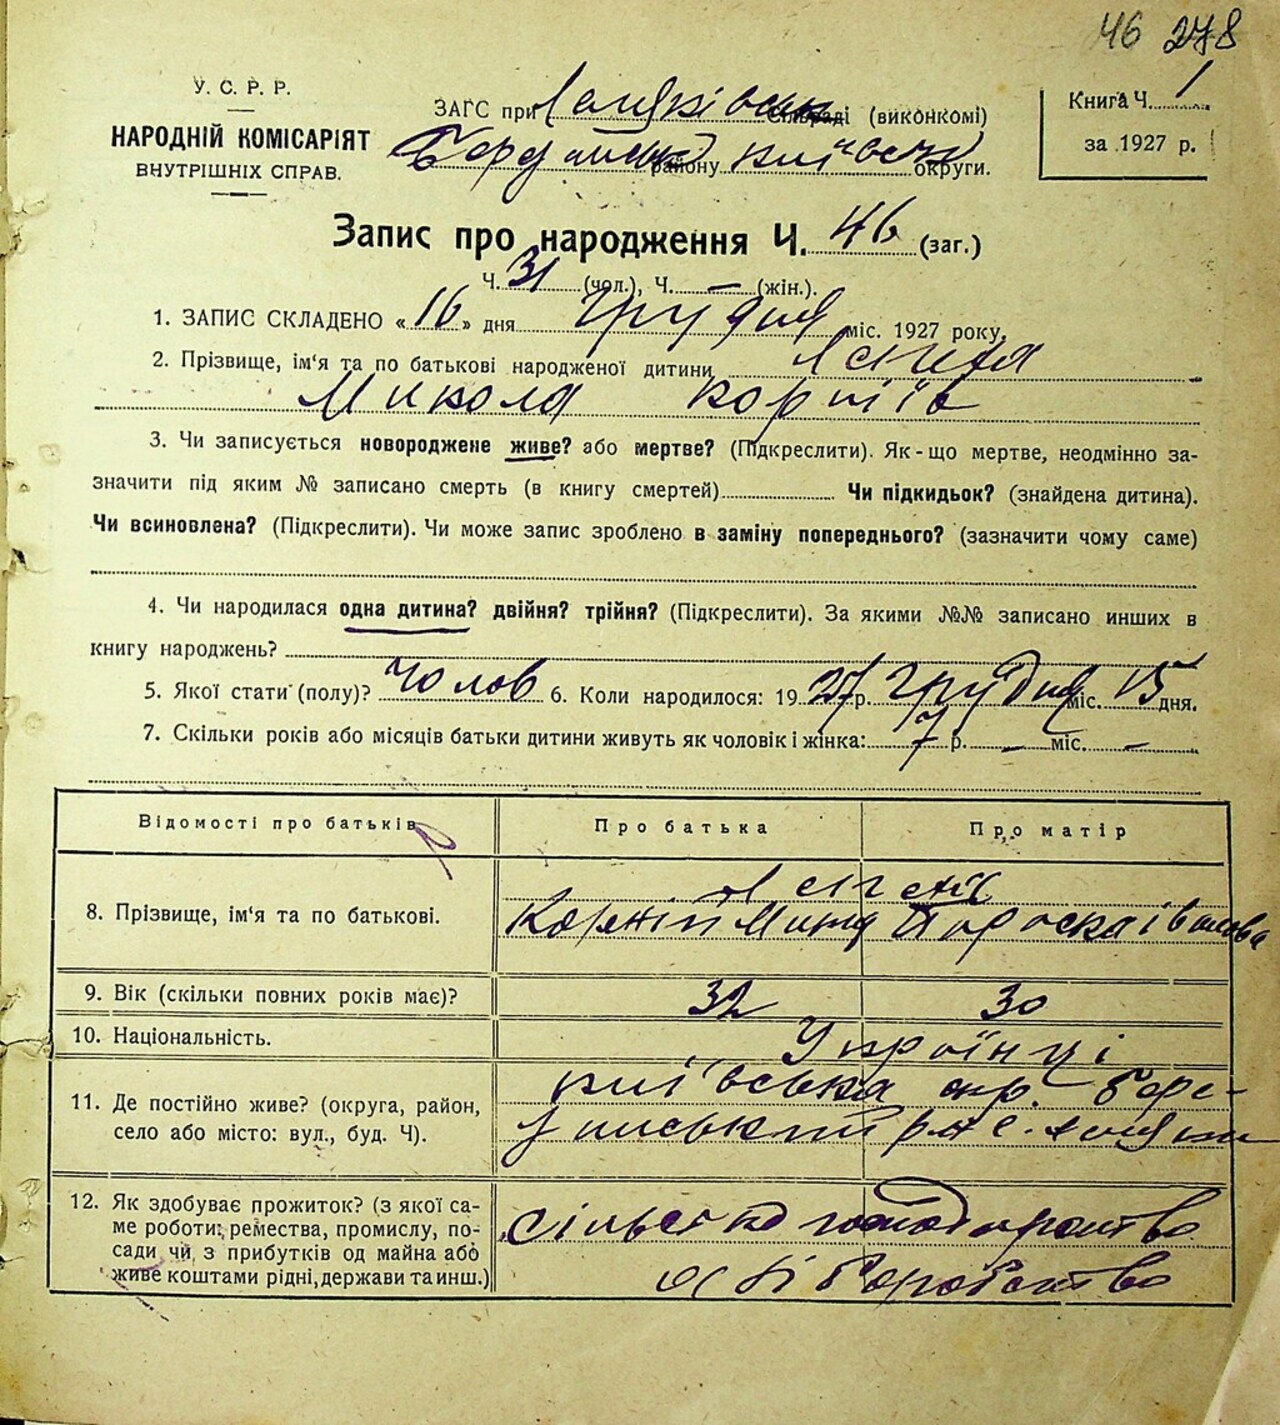 46 278
У. С. Р. Р.
НАРОДНІЙ КОМІСАРІЯТ
ВНУТРІШНІХ СПРАВ.
ЗАГС при сільраді (виконкомі)
району округи.
Книга Ч. 1
за 1927 р.
Запис про народження Ч. 46 (заг.)
Ч. 31 (чол.), Ч. — (жін.).
1. ЗАПИС СКЛАДЕНО «16» дня грудня міс. 1927 року.
2. Прізвище, ім'я та по батькові народженої дитини
Микола Корніїв
3. Чи записується новороджене живе? або мертве? (Підкреслити). Як-що мертве, неодмінно за-
значити під яким № записано смерть (в книгу смертей) Чи підкидьок? (знайдена дитина).
Чи всиновлена? (Підкреслити). Чи може запис зроблено в заміну попереднього? (зазначити чому саме)
4. Чи народилася одна дитина? двійня? трійня? (Підкреслити). За якими №№ записано инших в
книгу народжень?
5. Якої стати (полу)? Чолов 6. Коли народилося: 1927 р. грудня міс. 15 дня.
7. Скільки років або місяців батьки дитини живуть як чоловік і жінка: 7 р. — міс. —
Відомості про батьків Про батька Про матір
8. Прізвище, ім'я та по батькові.
Корній
9. Вік (скільки повних років має)? 32 30
10. Національність. Українці
11. Де постійно живе? (округа, район,
село або місто: вул., буд. Ч).
київська окр.
12. Як здобуває прожиток? (з якої са-
ме роботи: ремества, промислу, по-
сади чи з прибутків од майна або
живе коштами рідні, держави та инш.)